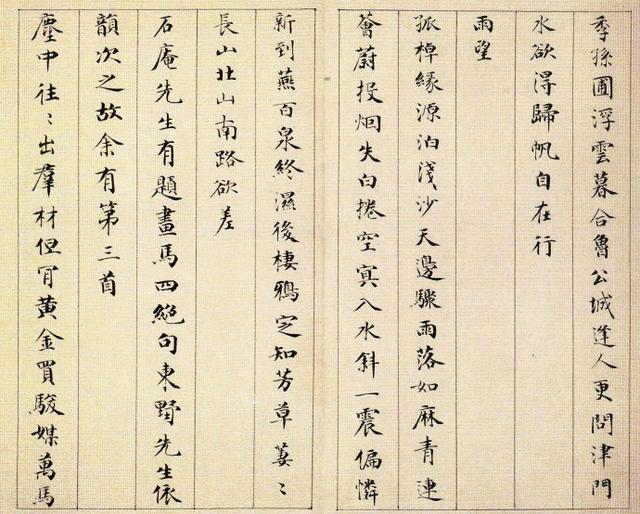 季孫圃浮雲暮合魯公城逢人更問津門
水欲得歸帆自在行
雨望
孤棹緣源泊淺沙天邊驟雨落如麻青連
薈蔚投烟失白捲空冥入水斜一震偏憐
新到燕百泉終濕後棲鴉定知芳草萋〻
長山北山南路欲差
石庵先生有題畫馬四絕句東野先生依
韻次之故余有第三首
塵中往〻出群材但肎黃金買駿媒萬馬